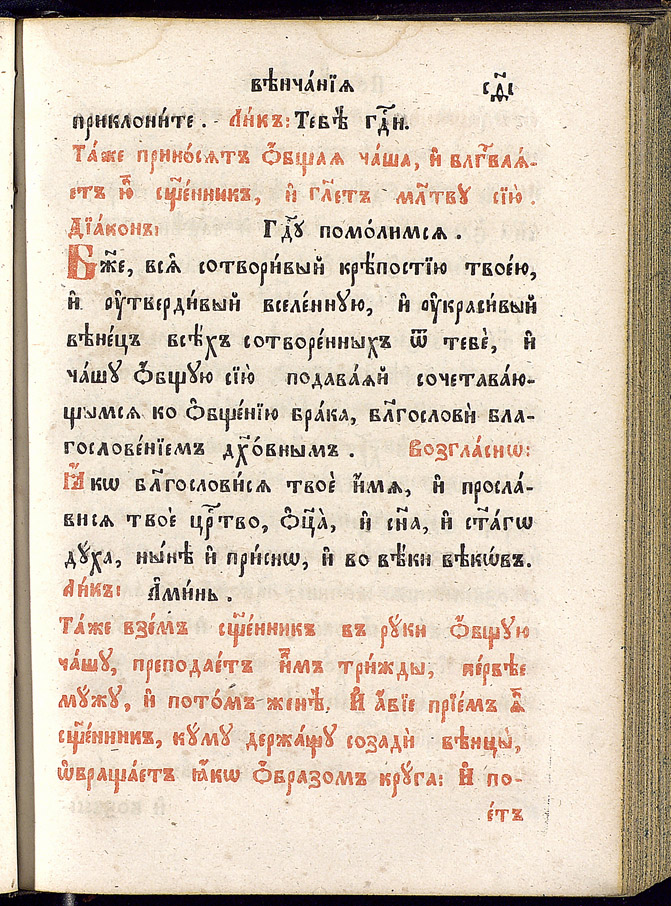 вѣнча́нїѧ
приклони́те. Ли́къ: Тебѣ̀ гдⷭ҇и.
Та́же прино́сѧтъ ѻ҆́бщаѧ ча́ша, и҆ блгⷭ҇вѧ-
етъ ю҆̀ сщ҃е́нникъ, и҆ гл҃етъ мл҃тву сїю̀.
Дїа́конъ: Гдⷭ҇у помо́лимсѧ.
Бж҃е, всѧ̑ сотвори́вый крѣ́постїю твое́ю,
и҆ ᲂу҆тверди́вый вселе́нную, и҆ ᲂу҆краси́вый
вѣне́цъ всѣ́хъ сотворе́нныхъ ѿ тебѐ, и҆
ча́шу ѻ҆́бщую сїю̀ подава́ѧй сочетава́ю-
щымсѧ ко ѻ҆бще́нїю бра́ка, бл҃гословѝ бла-
гослове́нїемъ дх҃о́внымъ. Возгла́снѡ:
Ꙗ҆́кѡ бл҃гослови́сѧ твоѐ и҆́мѧ, и҆ просла́-
висѧ твоѐ црⷭ҇тво, ѻ҆ц҃а̀, и҆ сн҃а, и҆ ст҃а́гѡ
дꙋ́ха, ны́нѣ и҆ при́снѡ, и҆ во вѣ́ки вѣкѡ́въ.
Ли́къ: А҆ми́нь.
Та́же взе́мъ сщ҃е́нникъ въ рꙋ́ки ѻ҆́бщую
ча́шу, преподае́тъ и҆̀мъ три́жды, пе́рвѣе
мꙋ́жу, и҆ пото́мъ женѣ̀. И҆ а҆́бїе прїе́мъ ѧ҆̀
сщ҃е́нникъ, кꙋ́му держа́щу созадѝ вѣнцы̀,
ѡ҆браща́етъ ꙗ҆́кѡ ѻ҆́бразомъ крꙋ́га: И҆ по-
е́тъ